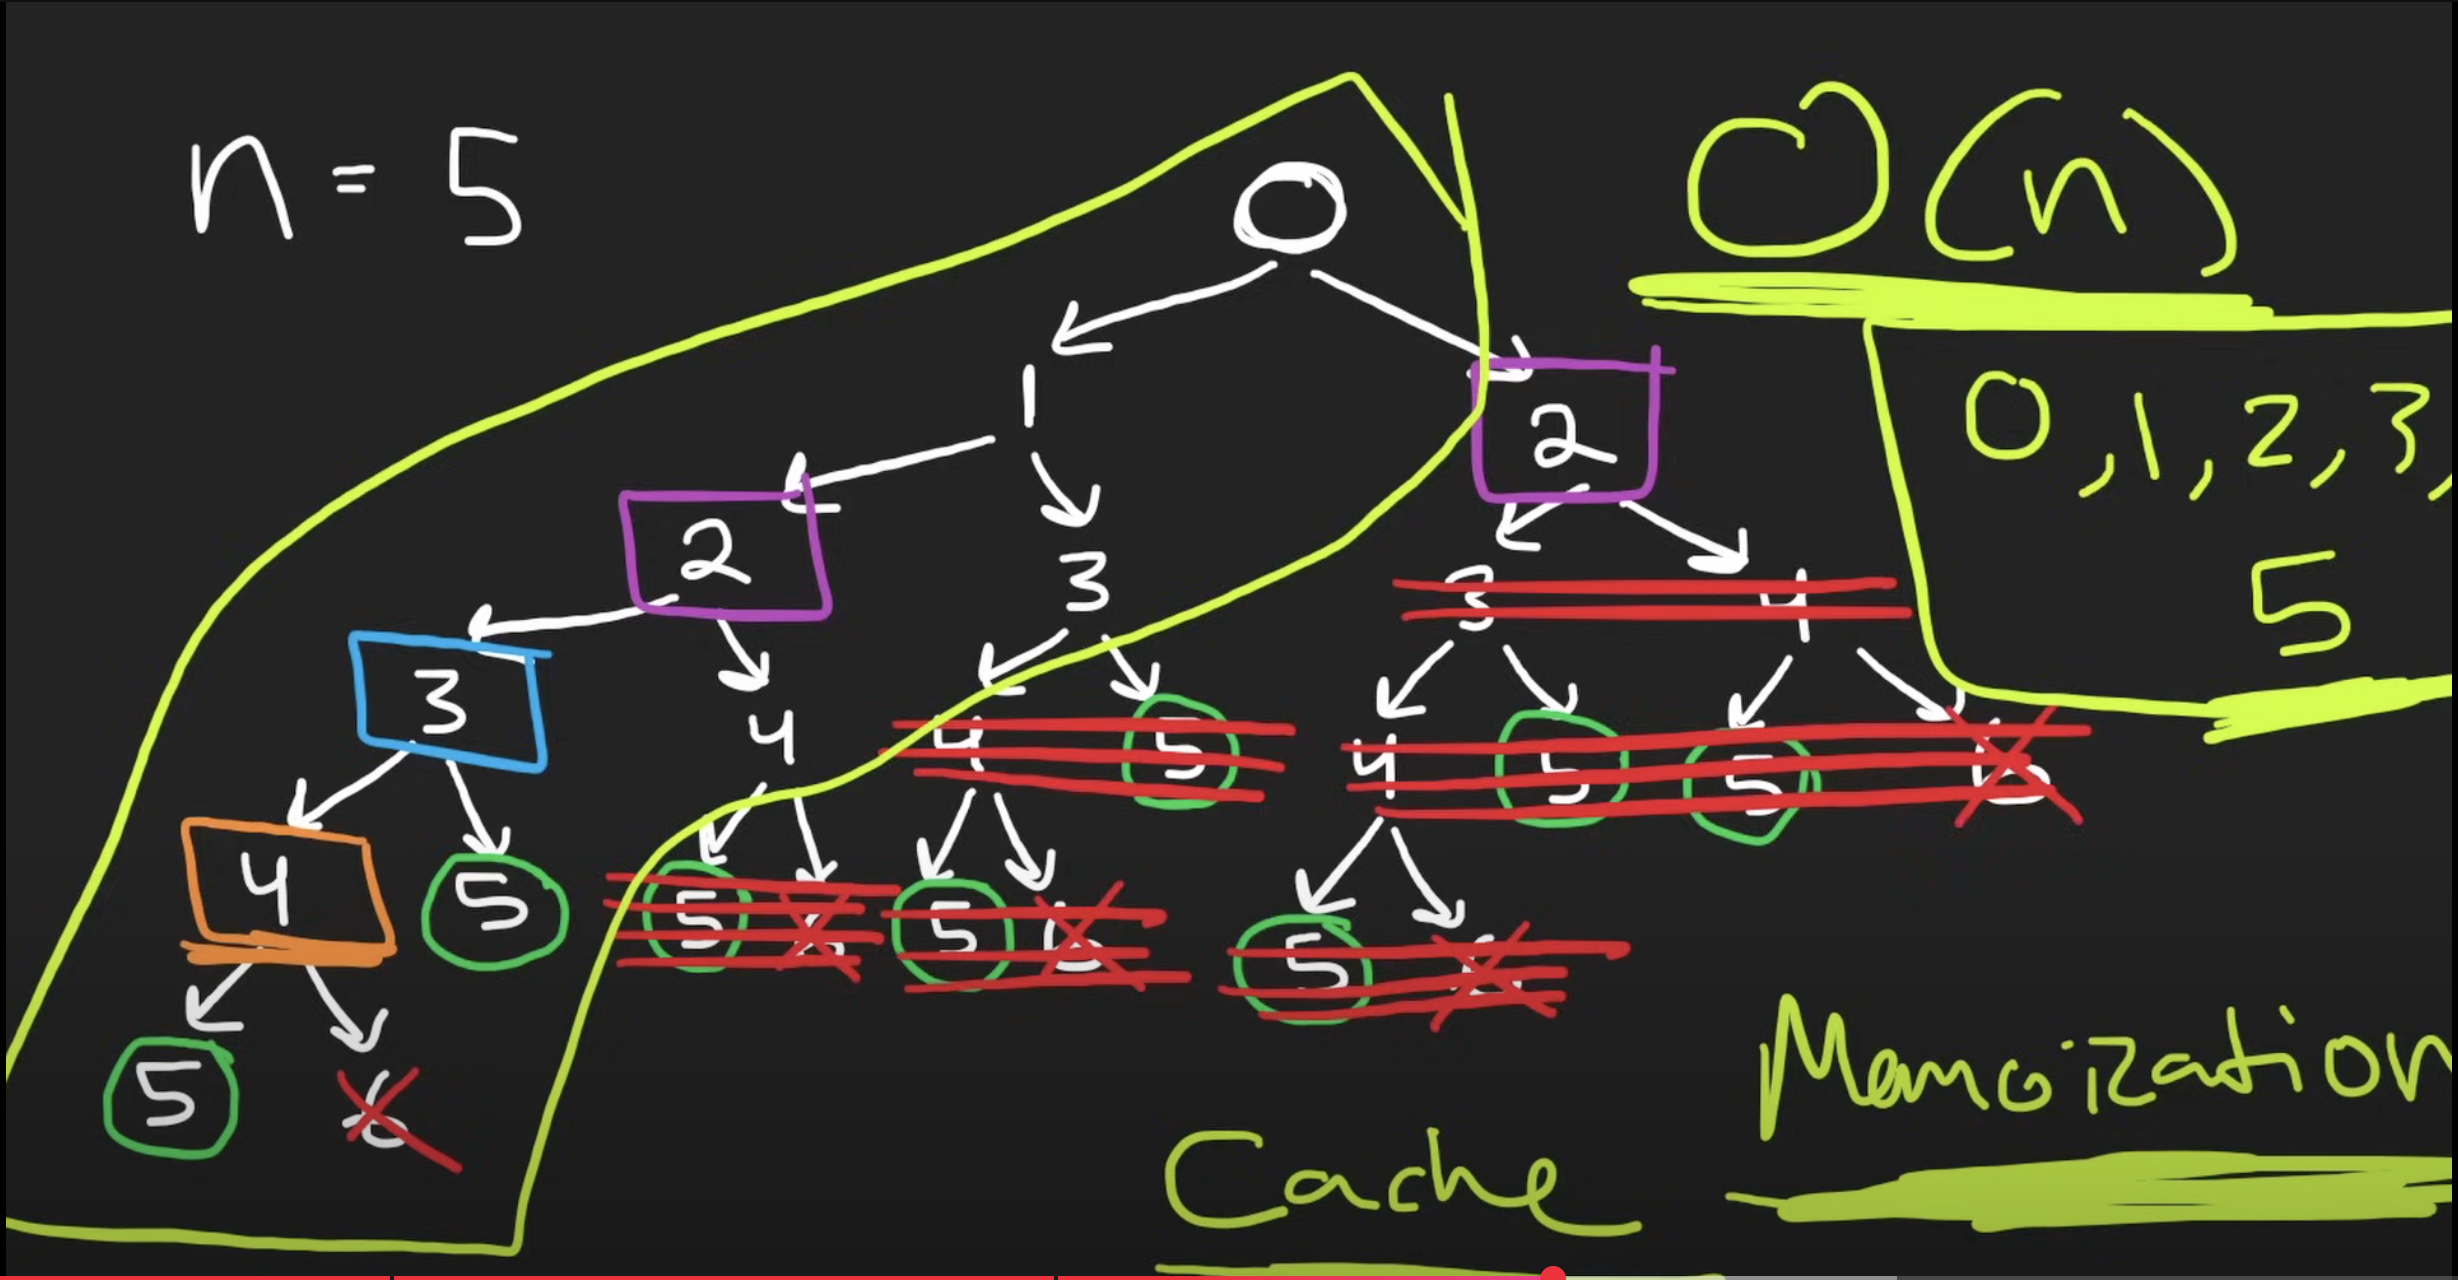 n = 5
O(n)
0
1
2
0, 1, 2, 3,
2
3
3
4
5
3
4
4
5
4
5
5
6
4
5
5
6
5
6
5
6
5
6
Memoization
Cache